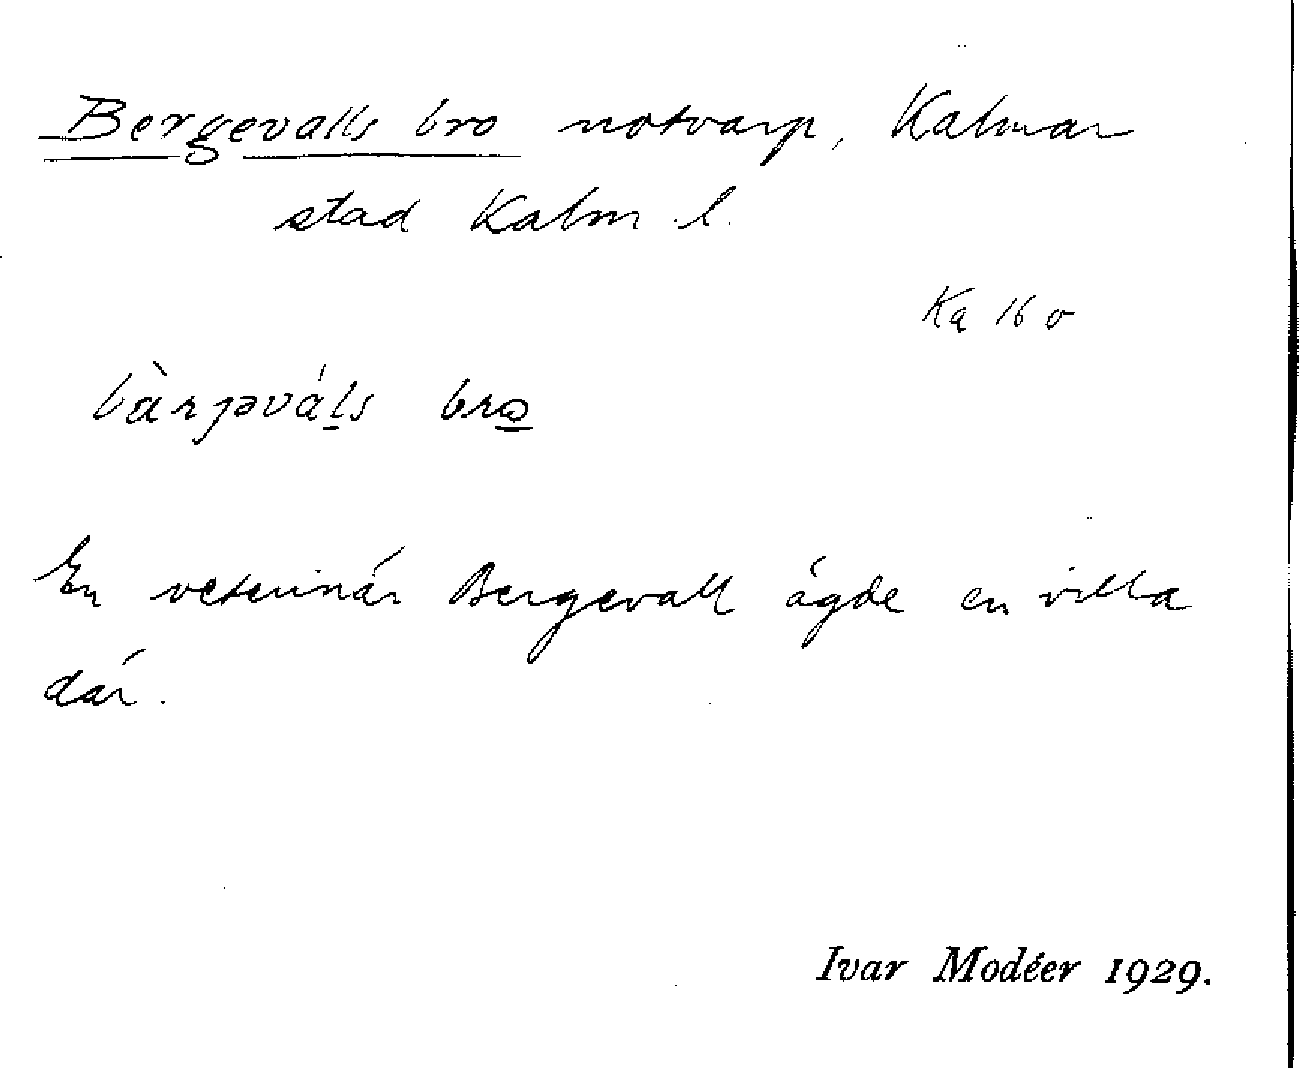 Bergevalls bro notvarp, Kalmar
stad Kalm l.
Ka 16 o
bàrɟəváls bro
En veterinär Bergevall ägde en villa
där.
Ivar Modéer 1929.